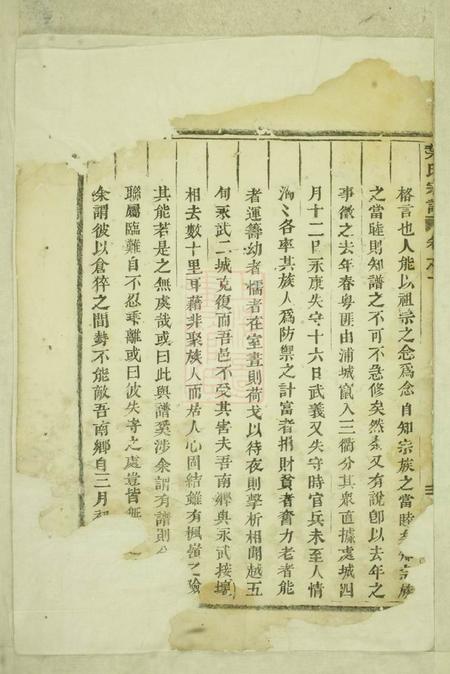 氏宗譜 卷之一
格言也人能以祖宗之念爲念自知宗族之當睦知譜族
之當睦則知譜之不可不急修矣然余又有說卽以去年之
事徵之去年春粵匪由浦城竄入三衢分其衆直據處城四
月十二日永康失守十六日武義又失守時官兵未至人情
洶〻各率其族人爲防禦之計富者捐財貧者奮力老者能
者運籌幼者懦者在室晝則荷戈以待夜則擊柝相聞越五
旬永武二城克復而吾邑不受其害夫吾南鄉與永武接壤
相去數十里耳藉非聚族人而居人心固結雖有楓嶺之險
其能若是之無虞哉或曰此與譜奚涉余謂有譜則
聯屬臨難自不忍乖離或曰彼失守之處豈皆無
余謂彼以倉猝之間勢不能敵吾南鄉自三月初